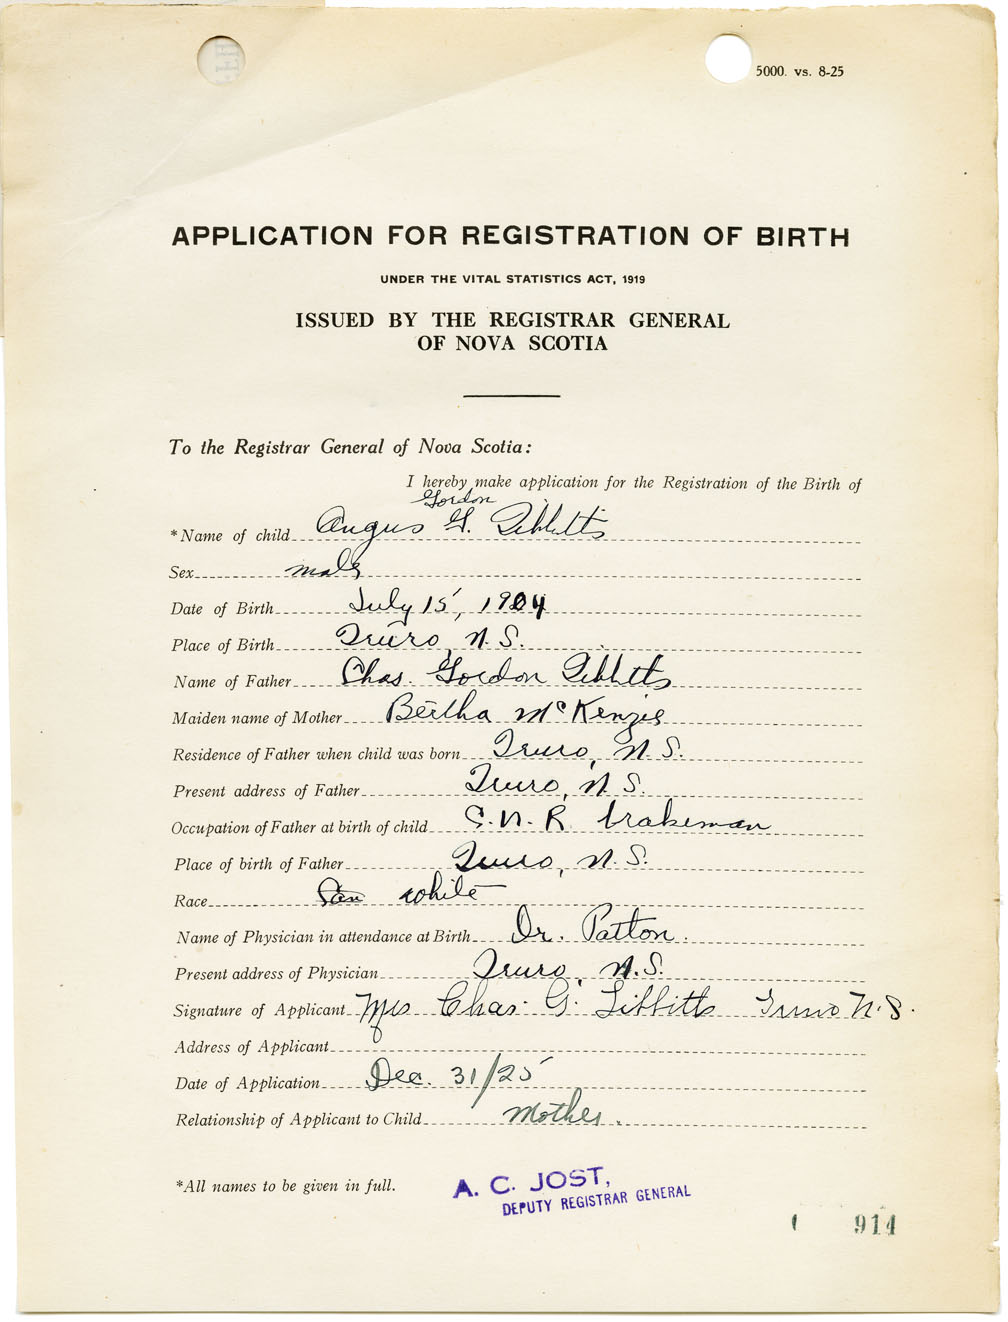 5000. vs. 8-25
APPLICATION FOR REGISTRATION OF BIRTH
UNDER THE VITAL STATISTICS ACT, 1919
ISSUED BY THE REGISTRAR GENERAL
OF NOVA SCOTIA
To the Registrar General of Nova Scotia:
I hereby make application for the Registration of the Birth of
Gordon
*Name of child Angus G. Tibbetts
Sex male
Date of Birth July 15, 1904
Place of Birth Truro, N. S.
Name of Father Chas. Gordon Tibbetts
Maiden name of Mother Bertha McKenzie
Residence of Father when child was born Truro, N. S.
Present address of Father Truro, N. S.
Occupation of Father at birth of child C. N. R. brakeman
Place of birth of Father Truro, N. S.
Race white
Name of Physician in attendance at Birth Dr. Patton.
Present address of Physician Truro, N. S.
Signature of Applicant Mrs Chas. G. Tibbitts Truro N. S.
Address of Applicant
Date of Application Dec. 31/25
Relationship of Applicant to Child Mother.
*All names to be given in full.
A. C. JOST,
DEPUTY REGISTRAR GENERAL
914